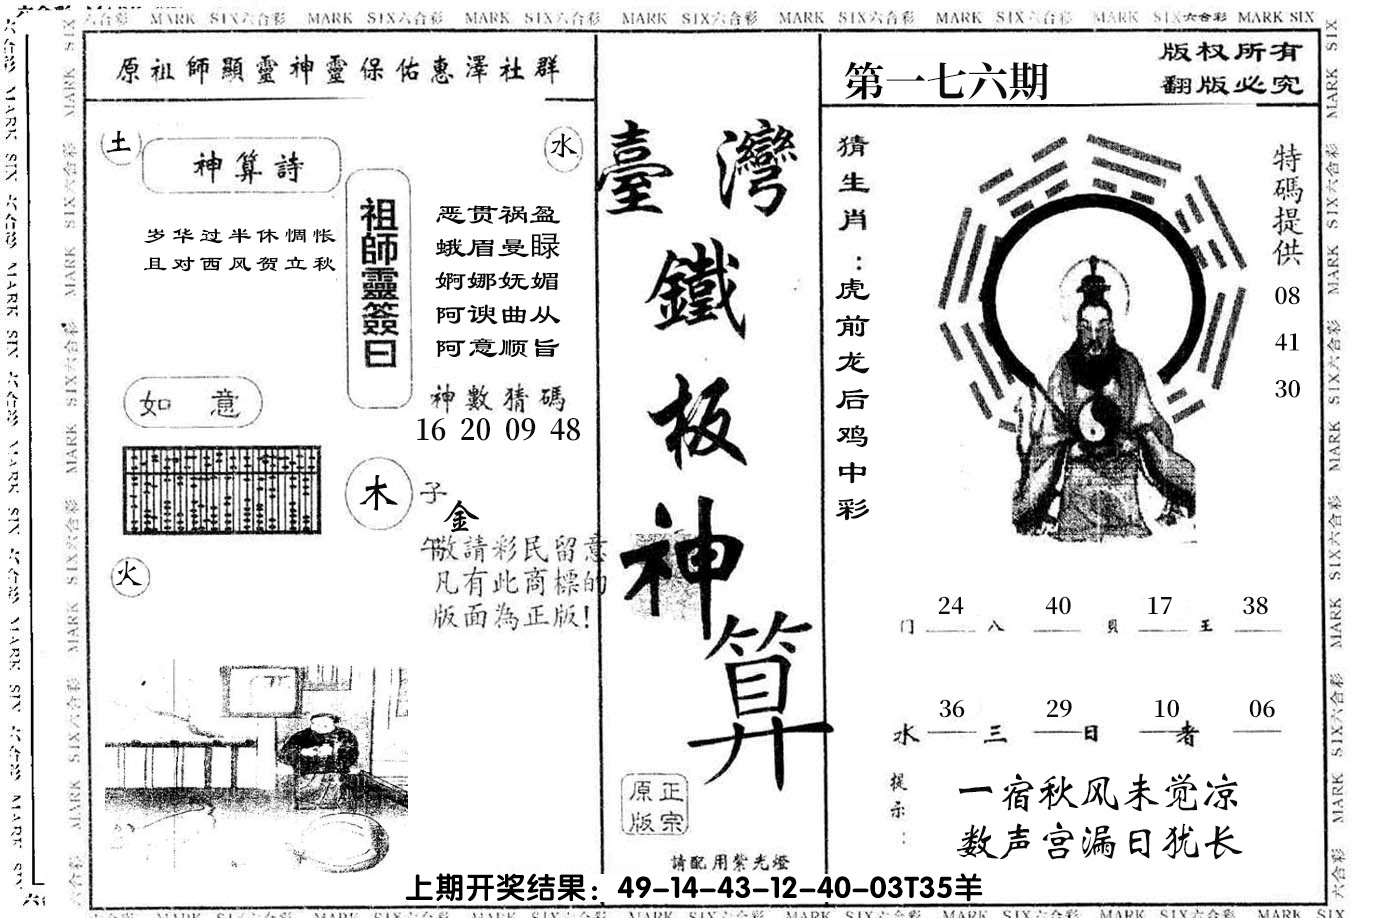 六合彩 MARK SIX六合彩 MARK SIX六合彩 MARK SIX六合彩 MARK SIX六合彩 MARK SIX六合彩 MARK SIX六合彩 MARK SIX六合彩 MARK SIX
原祖師顯靈神靈保佑惠澤社群
土
神算詩
水
岁华过半休惆怅
且对西风贺立秋
祖師靈簽曰
恶贯祸盈
蛾眉曼睩
婀娜妩媚
阿谀曲从
阿意顺旨
神數猜碼
16 20 09 48
如意
木
子
金
午
火
敬請彩民留意
凡有此商標的
版面為正版!
臺灣
鐵
板
神
算
正宗
原版
請配用紫光燈
第一七六期
版权所有
翻版必究
猜生肖:虎前龙后鸡中彩
特碼提供
08
41
30
24 40 17 38
门 八 貝 王
36 29 10 06
水 三 日 者
提示:
一宿秋风未觉凉
数声宫漏日犹长
上期开奖结果：49-14-43-12-40-03T35羊